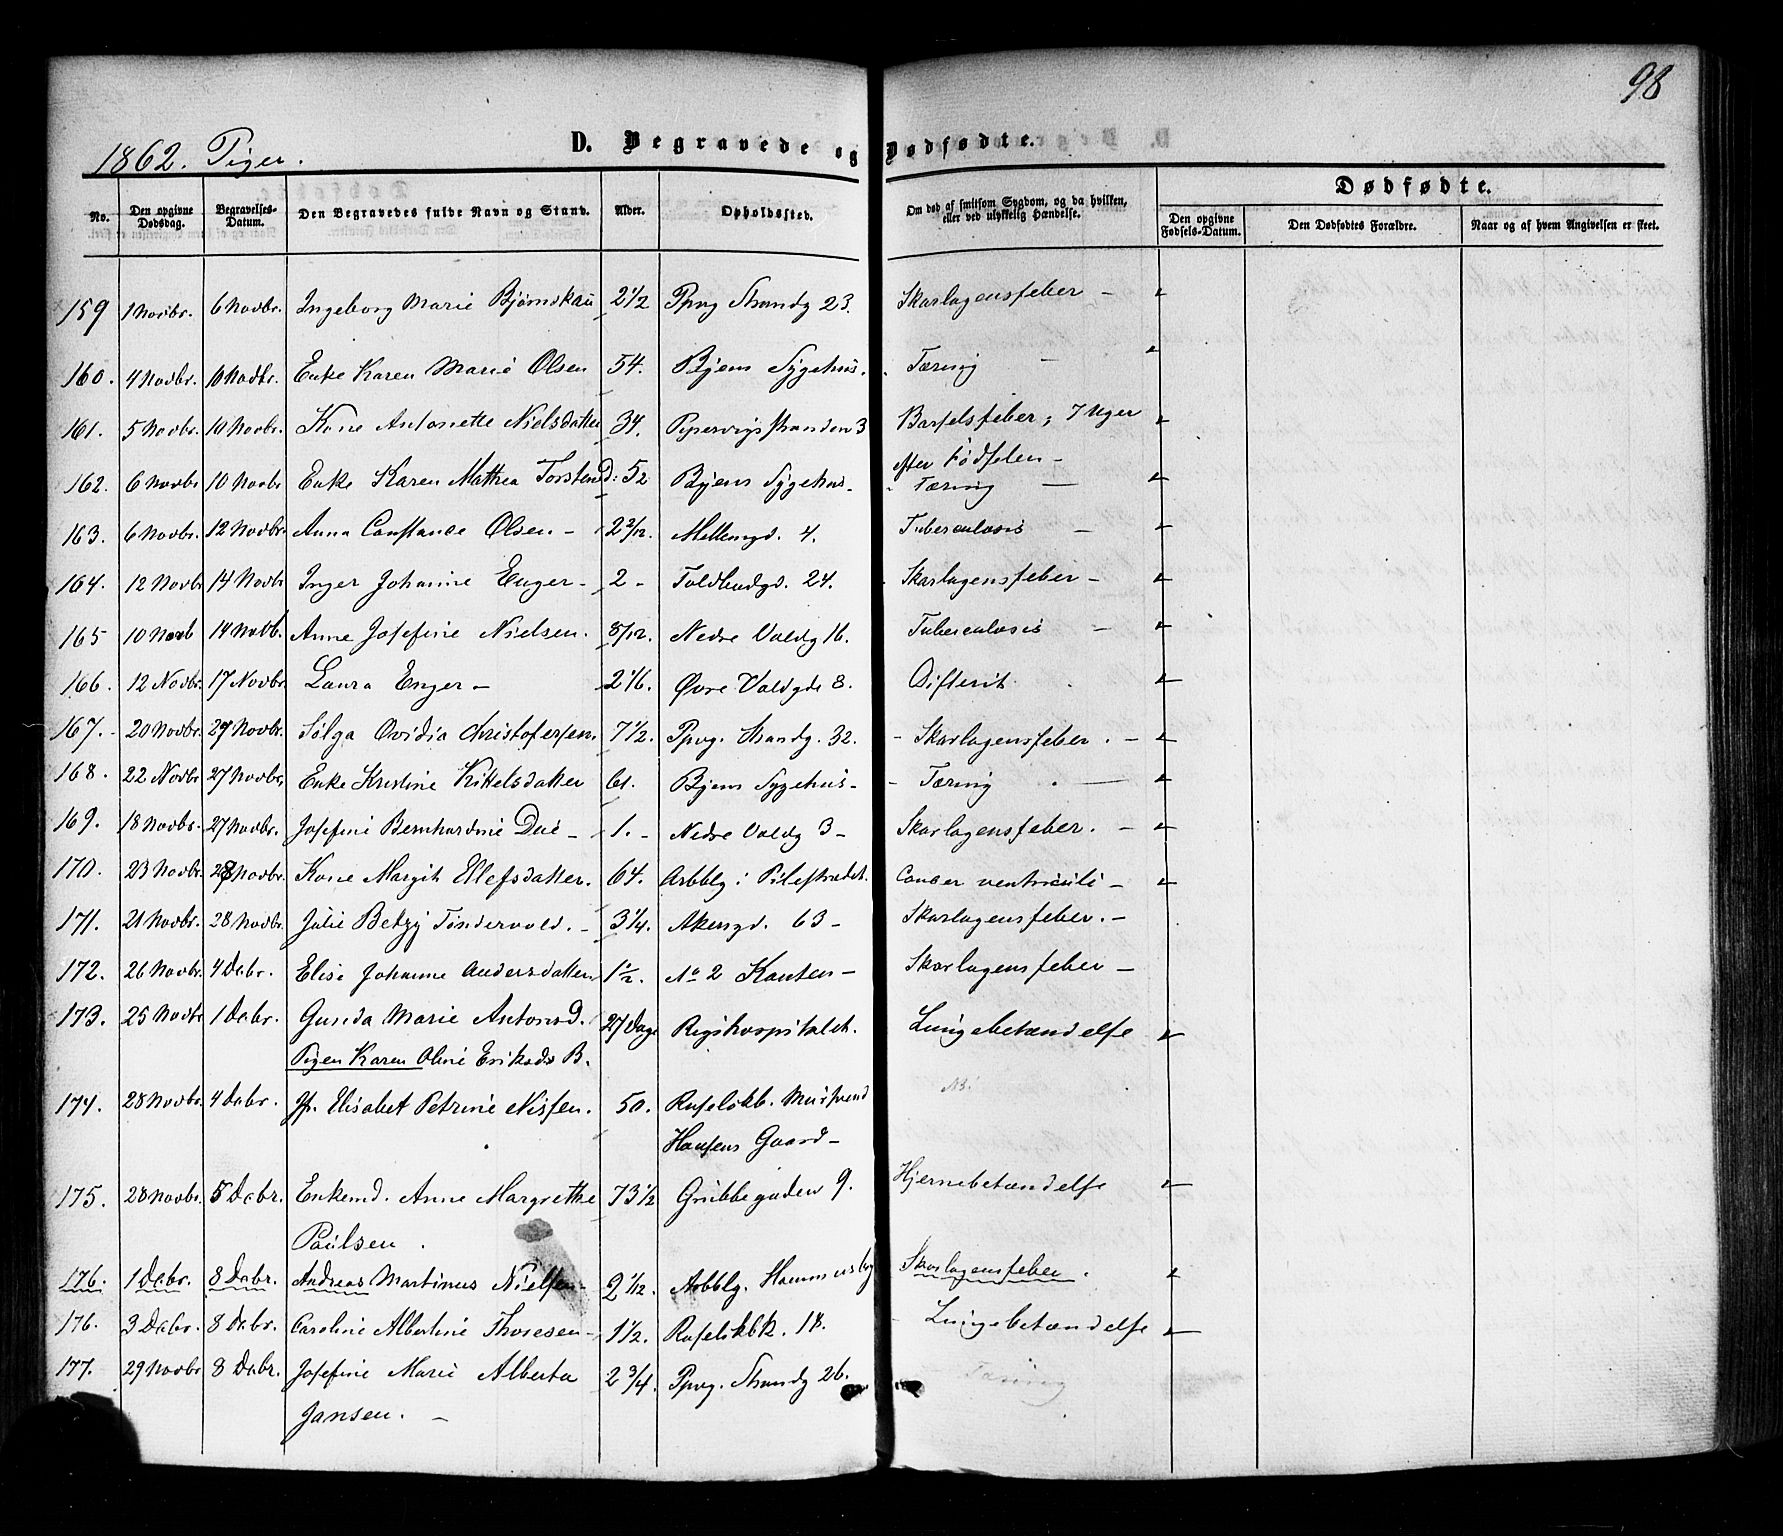 98
1862. Piger.
D. Begravede og Dødfødte.
No.
Den opgivne Dødsdag.
Begravelses-Datum.
Den Begravedes fulde Navn og Stand.
Alder.
Opholdssted.
Om død af smitsom Sygdom, og da hvilken, eller ved ulykkelig Hændelse.
Dødfødte.
Den opgivne Fødsels-Datum.
Den Dødfødtes Forældre.
Naar og af hvem Angivelsen er skeet.
159 1 Novbr. 6 Novbr. Ingeborg Marie Bjørnskau 2 1/2 Ppvg Strandg 23. Skarlagensfeber -
160. 4 Novbr. 10 Novbr. Enke Karen Marie Olsen 54. Byens Sygehus. Tæring -
161. 5 Novbr. 10 Novbr. Kone Antonette Nielsdatter 34. Pipervigstranden 3 Barselsfeber; 7 Uger
efter Fødselen -
162. 6 Novbr 10 Novbr Enke Karen Mathea Torstensd: 52 Byens Sygehus - Tæring -
163. 6 Novbr. 12 Novbr. Anna Constance Olsen - 2 2/12. Mellemgd. 4. Tuberculosis -
164. 12 Novbr 14 Novbr Inger Johanne Enger - 2 - Toldbudgd. 24. Skarlagensfeber -
165 10 Novb 14 Novb. Anne Josefine Nielsen. 8/12. Nedre Voldg 16. Tuberculosis -
166. 12 Novbr. 17 Novbr. Laura Enger - 2 1/6. Øvre Voldgde 8. Difterit.
167. - 20 Novbr. 27 Novbr. Solga Ovidia Christofersen. 7 1/2. Ppvg. Strandg. 32. - Skarlagensfeber. -
168. 22 Novbr. 27 Novbr. Enke Kristine Kittelsdatter 61. Byens Sygehus - - Tæring -
169. 18 Novbr. 27 Novbr. Josefine Bernhardine Due - 1. - Nedre Voldg 3 - Skarlagensfeber. -
170. 23 Novbr. 28 Novbr. Kone Margit Ellefsdatter. 64. Arbblg i Pilestrædet. Cancer ventriculi -
171. 21 Novbr. 28 Novbr. Julie Betzy Tøndervold. - 3 1/4. Akersgd. 63 - Skarlagensfeber. -
172. 26 Novbr. 4 Debr. Elise Johanne Andersdatter 1 1/2. No 2 Kanten - Skarlagensfeber -
173. 25 Novbr 1 Debr. Gunda Marie Antonsd. 27 Dage Rigshospitalet. Lungebetændelse
Pigen Karen Oline Eriksds B.
174. 28 Novbr. 4 Debr. Jf. Elisabet Petrine Nissen. 50. Roseløkb. Muursvend
Hansens Gaard -
175. 28 Novbr. 5 Debr. Enkemd. Anne Margrethe 73 1/2 Grubbegaden 9. Hjernebetændelse
Paulsen.
176. 1 Debr. 8 Debr. Andreas Martinus Nielsen - 2 1/12 Arbblg. Hammersbg Skarlagensfeber.
176. 3 Debr. 8 Debr. Caroline Albertine Thoresen - 1 1/2. Roseløkbk. 18. - Lungebetændelse
177. 29 Novbr 8 Debr. Josefine Marie Alberta 2 3/4. Ppvg. Strandg 26. Tæring
Jansen. -